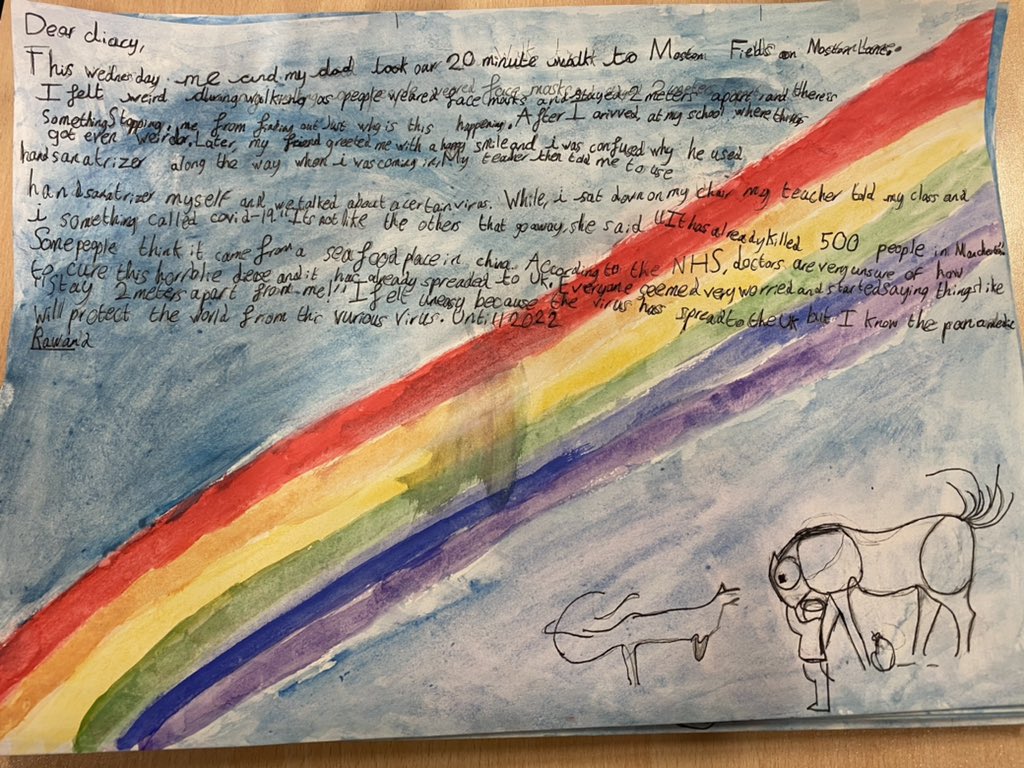 Dear diacy,
This wednesday. me and my dad took our 20 minute walk to Moston Fields on Moston Lane.
I felt weird during walking as people weared face masks and stayed 2 meters apart and there is
something stopping me from finding out Just why is this happening. After I arivved, at my school where things
got even weirder. Later, my friend greeted me with a happy smile and i was confused why he used
handsanatrizer along the way when i was coming in. My teacher then told me to use
handsanatrizer myself and we talked about a certan virus. While, i sat down on my chair my teacher told my class and
i something called covid-19. "Its not like the others that go away, she said "It has already killed 500 people in Manchester
Some people think it came from a sea food place in china. According to the NHS, doctors are very unsure of how
to cure this horroblie diease and it has already spreaded to UK. Everyone seemed very worried and started saying things like
"Stay 2 meters apart from me!" I felt uneasy because the virus has spread to the UK but I know the
will protect the world from this vurious virus. Until 2022
Rawand